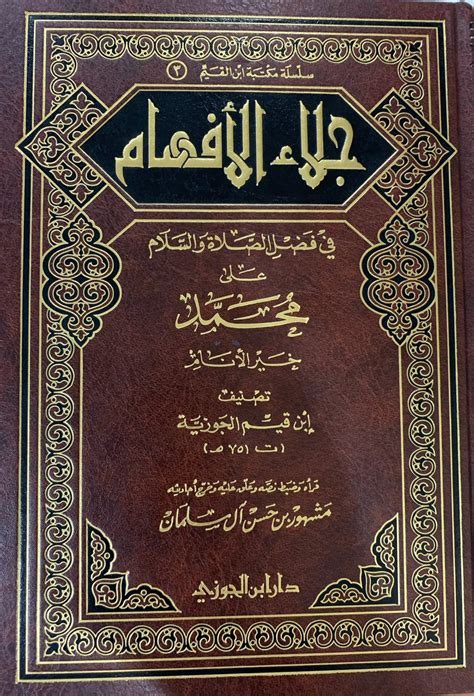 سلسلة مكتبة ابن القيم ٣
جلاء الأفهام
في فضل الصلاة والسلام
على
محمد
خير الأنام
تصنيف
ابن قيم الجوزية
(ت ٧٥١ هـ)
قرأه وضبط نصه وعلق عليه وخرج أحاديثه
مشهور بن حسن آل سلمان
دار ابن الجوزي